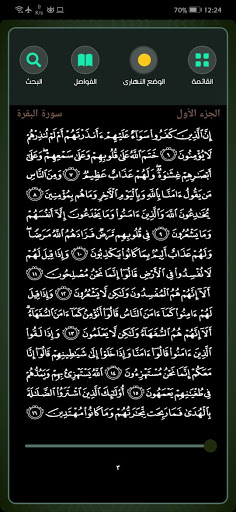 0 K/s 70% 12:24
القائمة الوضع النهارى الفواصل البحث
الجزء الأول سورة البقرة
إِنَّ ٱلَّذِينَ كَفَرُوا۟ سَوَآءٌ عَلَيْهِمْ ءَأَنذَرْتَهُمْ أَمْ لَمْ تُنذِرْهُمْ
لَا يُؤْمِنُونَ ٦ خَتَمَ ٱللَّهُ عَلَىٰ قُلُوبِهِمْ وَعَلَىٰ سَمْعِهِمْ وَعَلَىٰٓ
أَبْصَٰرِهِمْ غِشَٰوَةٌ وَلَهُمْ عَذَابٌ عَظِيمٌ ٧ وَمِنَ ٱلنَّاسِ
مَن يَقُولُ ءَامَنَّا بِٱللَّهِ وَبِٱلْيَوْمِ ٱلْءَاخِرِ وَمَا هُم بِمُؤْمِنِينَ ٨
يُخَٰدِعُونَ ٱللَّهَ وَٱلَّذِينَ ءَامَنُوا۟ وَمَا يَخْدَعُونَ إِلَّآ أَنفُسَهُمْ
وَمَا يَشْعُرُونَ ٩ فِى قُلُوبِهِم مَّرَضٌ فَزَادَهُمُ ٱللَّهُ مَرَضًا
وَلَهُمْ عَذَابٌ أَلِيمٌۢ بِمَا كَانُوا۟ يَكْذِبُونَ ١٠ وَإِذَا قِيلَ لَهُمْ
لَا تُفْسِدُوا۟ فِى ٱلْأَرْضِ قَالُوٓا۟ إِنَّمَا نَحْنُ مُصْلِحُونَ ١١
أَلَآ إِنَّهُمْ هُمُ ٱلْمُفْسِدُونَ وَلَٰكِن لَّا يَشْعُرُونَ ١٢ وَإِذَا قِيلَ
لَهُمْ ءَامِنُوا۟ كَمَآ ءَامَنَ ٱلنَّاسُ قَالُوٓا۟ أَنُؤْمِنُ كَمَآ ءَامَنَ ٱلسُّفَهَآءُ
أَلَآ إِنَّهُمْ هُمُ ٱلسُّفَهَآءُ وَلَٰكِن لَّا يَعْلَمُونَ ١٣ وَإِذَا لَقُوا۟
ٱلَّذِينَ ءَامَنُوا۟ قَالُوٓا۟ ءَامَنَّا وَإِذَا خَلَوْا۟ إِلَىٰ شَيَٰطِينِهِمْ قَالُوٓا۟ إِنَّا
مَعَكُمْ إِنَّمَا نَحْنُ مُسْتَهْزِءُونَ ١٤ ٱللَّهُ يَسْتَهْزِئُ بِهِمْ وَيَمُدُّهُمْ
فِى طُغْيَٰنِهِمْ يَعْمَهُونَ ١٥ أُو۟لَٰٓئِكَ ٱلَّذِينَ ٱشْتَرَوُا۟ ٱلضَّلَٰلَةَ
بِٱلْهُدَىٰ فَمَا رَبِحَت تِّجَٰرَتُهُمْ وَمَا كَانُوا۟ مُهْتَدِينَ ١٦
٣